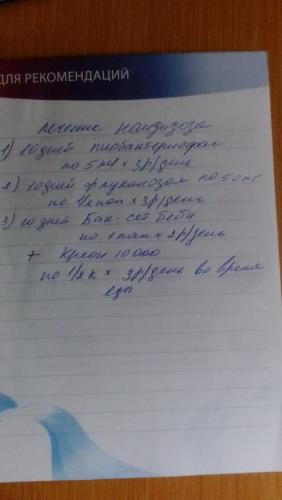 ДЛЯ РЕКОМЕНДАЦИЙ
лечение кандидоза
1) 10 дней пиобактериофаг
по 5 мл x 3 р/день
2) 10 дней флуконазол по 50 мг
по 1/2 кап x 3 р/день
3) 10 дней Бак-сет беби
по 1 пак x 2 р/день
+ Креон 10 000
по 1/2 к x 3 р/день во время
еды